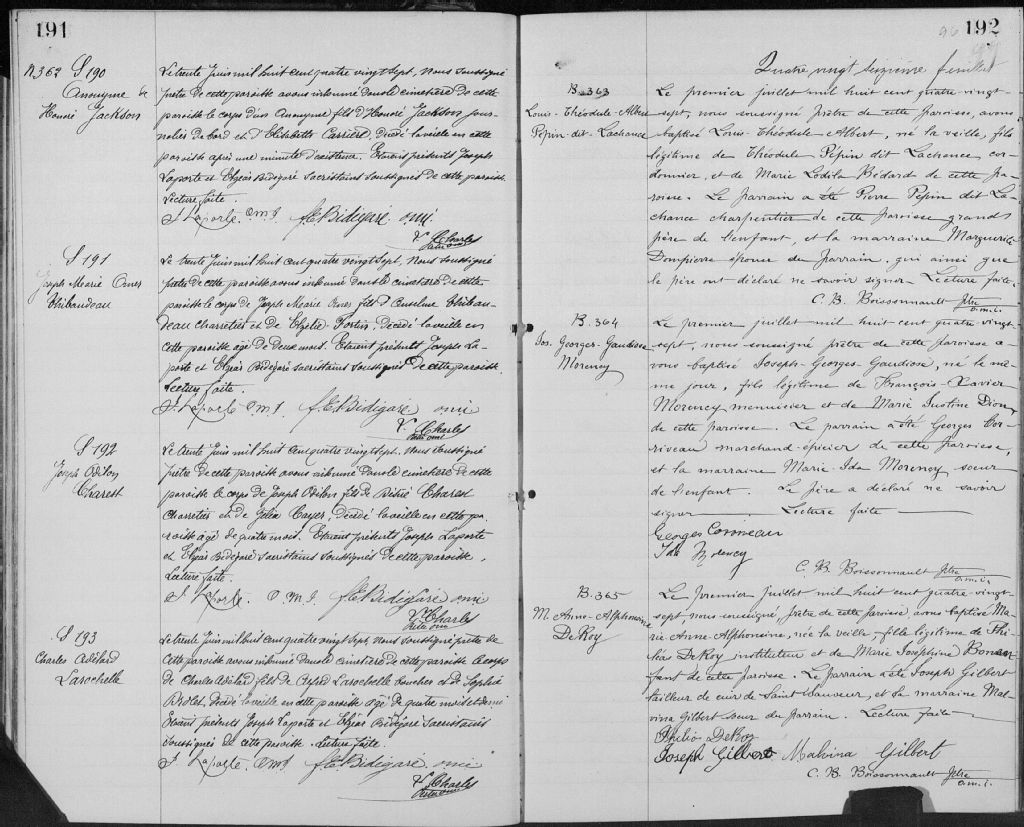 191
N 362 S 190
Anonyme de
Honoré Jackson
Le trente Juin mil huit cent quatre vingt sept, Nous soussigné
prêtre de cette paroisse avons inhumé dans le cimetière de cette
paroisse le corps d'un Anonyme fils d'Honoré Jackson jour-
nalier de bord et d'Elisabeth Carrière, décédé la veille en cette
paroisse après une minute d'existence. Etaient présents Joseph
Laporte et Elzéar Bidégaré Sacristains soussignés de cette paroisse.
Lecture faite.
J. Laporte. O.M.I. f. E. Bidégaré omi.
V. Charles
Ptre omi
S 191
Joseph Marie Omer
Thibaudeau
Le trente Juin mil huit cent quatre vingt sept, Nous soussigné
prêtre de cette paroisse avons inhumé dans le cimetière de cette
paroisse le corps de Joseph Marie Omer fils d'Anselme Thibau-
deau charretier et de Elzélie Fortin, décédé la veille en
cette paroisse agé de deux mois. Etaient présents Joseph La-
porte et Elzéar Bidégaré Sacristains soussignés de cette paroisse.
Lecture faite.
J. Laporte O.M.I. f. E. Bidégaré omi
V. Charles
Ptre omi
S 192
Joseph Odilon
Charest
Le trente Juin mil huit cent quatre vingt sept, Nous soussigné
prêtre de cette paroisse avons inhumé dans le cimetière de cette
paroisse le corps de Joseph Odilon fils de Désiré Charest
Charretier et de Célina Cayer, décédé la veille en cette pa-
roisse agé de quatre mois. Etaient présents Joseph Laporte
et Elzéar Bidégaré Sacristains soussignés de cette paroisse.
Lecture faite.
J. Laporte. O.M.I. f. E. Bidégaré omi
V. Charles
Ptre omi
S 193
Charles Adélard
Larochelle
Le trente Juin mil huit cent quatre vingt sept, Nous soussigné prêtre de
cette paroisse avons inhumé dans le cimetière de cette paroisse le corps
de Charles Adélard fils de Larochelle boucher et de Sophie
décédé la veille en cette paroisse agé de quatre mois et demi
Etaient présents Joseph Laporte et Elzéar Bidégaré Sacristains
soussignés de cette paroisse. Lecture faite.
J. Laporte. O.M.I. f. E. Bidégaré omi
V. Charles
Ptre omi
96 192
Quatre vingt seizième feuillet
B. 363
Louis-Théodule-Albert
Pepin-dit-Lachance
Le premier juillet mil huit cent quatre-vingt-
sept, nous soussigné prêtre de cette paroisse, avons
baptisé Louis-Théodule Albert, né la veille, fils
légitime de Théodule Pépin dit Lachance cor-
donnier, et de Marie Lodila Bédard de cette pa-
roisse. Le parrain a été Pierre Pepin dit La-
chance charpentier de cette paroisse grand-
père de l'enfant, et la marraine Marguerite
Dompierre épouse du parrain, qui ainsi que
le père ont déclaré ne savoir signer. Lecture faite.
C. B. Boissonnault Ptre
o.m.i.
B. 364
Jos. Georges-Gaudiose
Morency
Le premier juillet mil huit cent quatre-vingt-
sept, nous soussigné prêtre de cette paroisse a-
vons baptisé Joseph-Georges-Gaudiose, né le mê-
me jour, fils légitime de François-Xavier
Morency menuisier et de Marie Justine Dion,
de cette paroisse. Le parrain a été Georges Cor-
riveau marchand-épicier de cette paroisse,
et la marraine Marie-Ida Morency soeur
de l'enfant. Le père a déclaré ne savoir
signer Lecture faite
Georges Corriveau
Ida Morency
C. B. Boissonnault Ptre
o.m.i.
B. 365
M. Anne-Alphonsine
DeRoy
Le premier juillet mil huit cent quatre-vingt-
sept, nous soussigné, prêtre de cette paroisse, avons baptisé Ma-
rie Anne-Alphonsine, née la veille, fille légitime de Phi-
léas DeRoy instituteur et de Marie Joséphine Bonen-
fant de cette paroisse. Le parrain a été Joseph Gilbert
tailleur de cuir de Saint Sauveur, et la marraine Mal-
vina Gilbert soeur du parrain. Lecture faite
DeRoy
Joseph Gilbert Malvina Gilbert
C. B. Boissonnault Ptre
o.m.i.